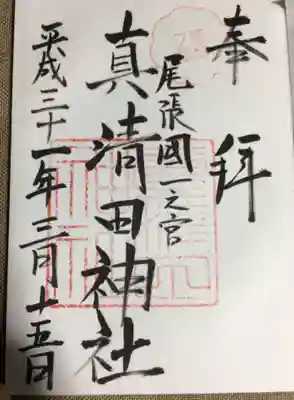 奉拝
尾張國一之宮
真清田神社
平成三十一年三月十五日